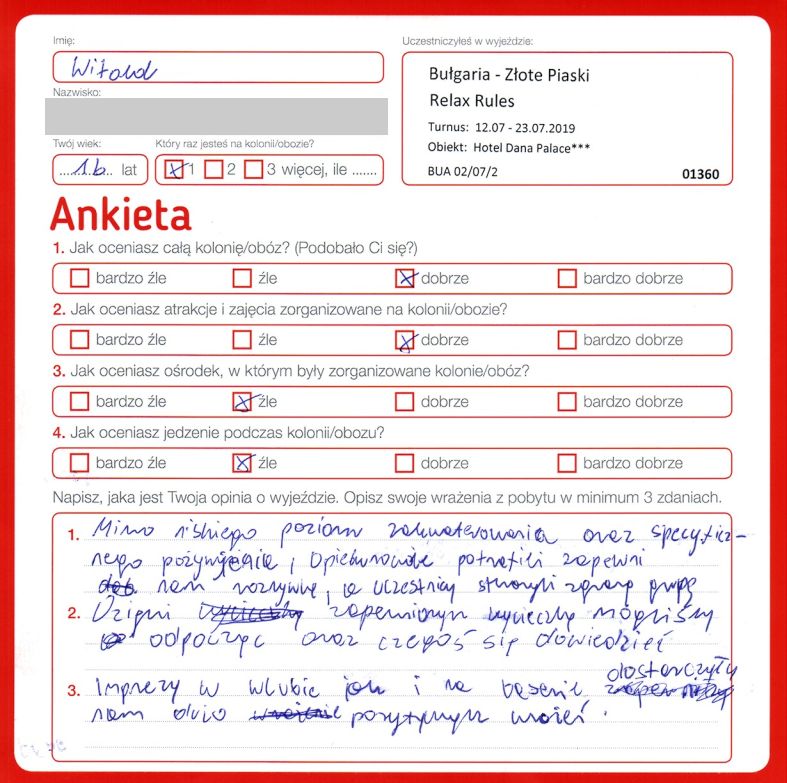 Imię:
Uczestniczyłeś w wyjeździe:
Witold
Bułgaria - Złote Piaski
Relax Rules
Nazwisko:
Turnus: 12.07 - 23.07.2019
Obiekt: Hotel Dana Palace***
BUA 02/07/2
01360
Twój wiek:
Który raz jesteś na kolonii/obozie?
16 lat
1 2 3 więcej, ile .......
Ankieta
1. Jak oceniasz całą kolonię/obóz? (Podobało Ci się?)
bardzo źle źle dobrze bardzo dobrze
2. Jak oceniasz atrakcje i zajęcia zorganizowane na kolonii/obozie?
bardzo źle źle dobrze bardzo dobrze
3. Jak oceniasz ośrodek, w którym były zorganizowane kolonie/obóz?
bardzo źle źle dobrze bardzo dobrze
4. Jak oceniasz jedzenie podczas kolonii/obozu?
bardzo źle źle dobrze bardzo dobrze
Napisz, jaka jest Twoja opinia o wyjeździe. Opisz swoje wrażenia z pobytu w minimum 3 zdaniach.
1. Mimo niskiego poziomu zakwaterowania oraz specyficz-
nego pożywienia, Opiekunowie potrafili zapewni
nam rozrywkę, a Uczestnicy stworzyli zgraną grupę
2. Dzięki zapewnionym wycieczką mogliśmy
odpocząć oraz czegoś się dowiedzieć
dostarczyły
3. Imprezy w klubie jak i na basenie
nam dużo pozytywnych wrażeń.